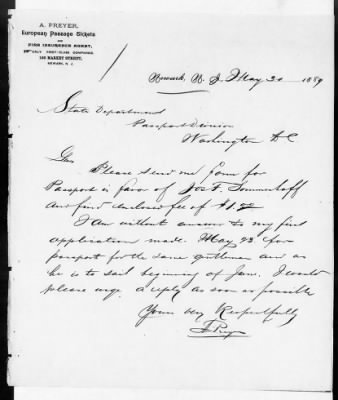 A. PREYER,
European Passage Tickets
AND
FIRE INSURANCE AGENT,
ONLY FIRST-CLASS COMPANIES.
MARKET STREET,
NEWARK, N. J.
Newark, N. J. May 30 1889
State Department
Passport Division
Washington DC
Please send me form for
Passport in favor of Jos F. Sommerhoff
and find enclosed fee of
I am without answer to my first
application made May 23 for
passport for the same gentleman and as
he is to sail beginning of June. I would
please urge a reply as soon as possible
Yours very Respectfully
A. Preyer